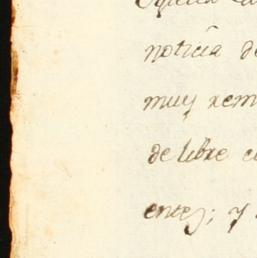 noticia de
muy rem
de libre c
entes; y